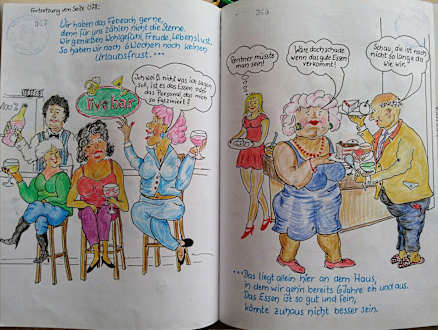 Fortsetzung von Seite 078:
Wir haben das Fabeach gerne,
denn für uns zählen nicht die Sterne.
Wir genießen Wohlgefühl, Freude, Lebenslust.
So haben wir nach 6 Wochen noch keinen
Urlaubsfrust....
Ich weiß nicht was ich sagen
soll, ist es das Essen oder
das Personal, das mich
so fasziniert?
live bar
Rentner müsste
man sein!
Wäre doch schade
wenn das gute Essen
verkommt!
Schau, die ist noch
nicht so lange da
wie wir.
...Das liegt allein hier an dem Haus,
in dem wir gehn bereits 6 Jahre ein und aus.
Das Essen ist so gut und fein,
könnte zuhaus nicht besser sein.